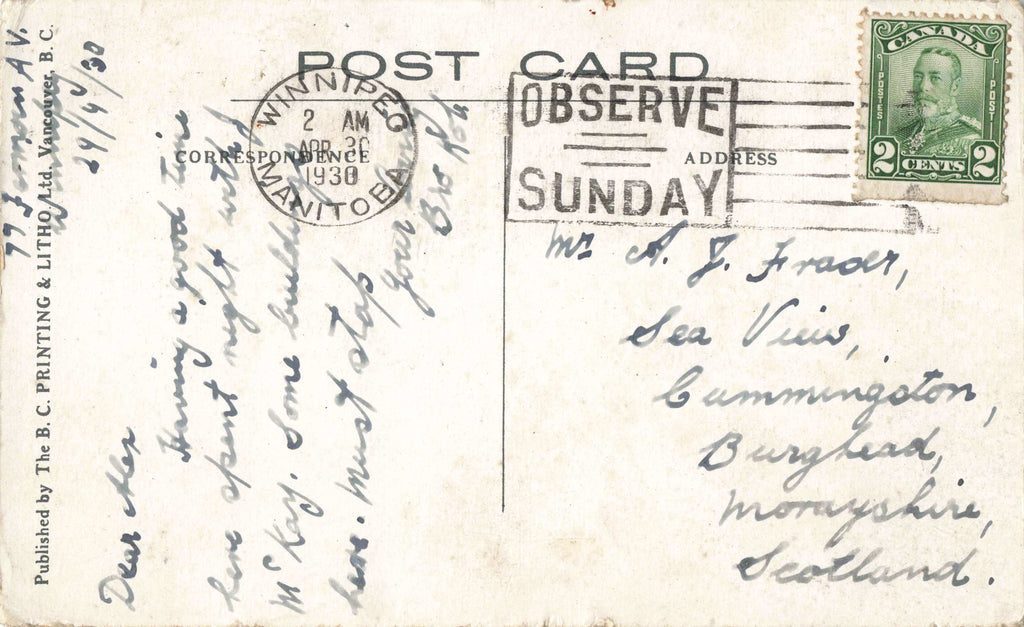 POST CARD
CORRESPONDENCE
ADDRESS
Published by The B. C. PRINTING & LITHO. Ltd. Vancouver, B. C.
WINNIPEG
2 AM
APR 30
1930
MANITOBA
OBSERVE
SUNDAY
CANADA
POSTES
POST
2 CENTS 2
77 AV.
Winnipeg
29/4/30
Dear Alex
Having a good time
here spent night with
McKay. Some buildings
here. Must stop
Your
Bro Rob
Mr A. J. Fraser,
Sea View,
Cummingston,
Burghead,
Morayshire,
Scotland.